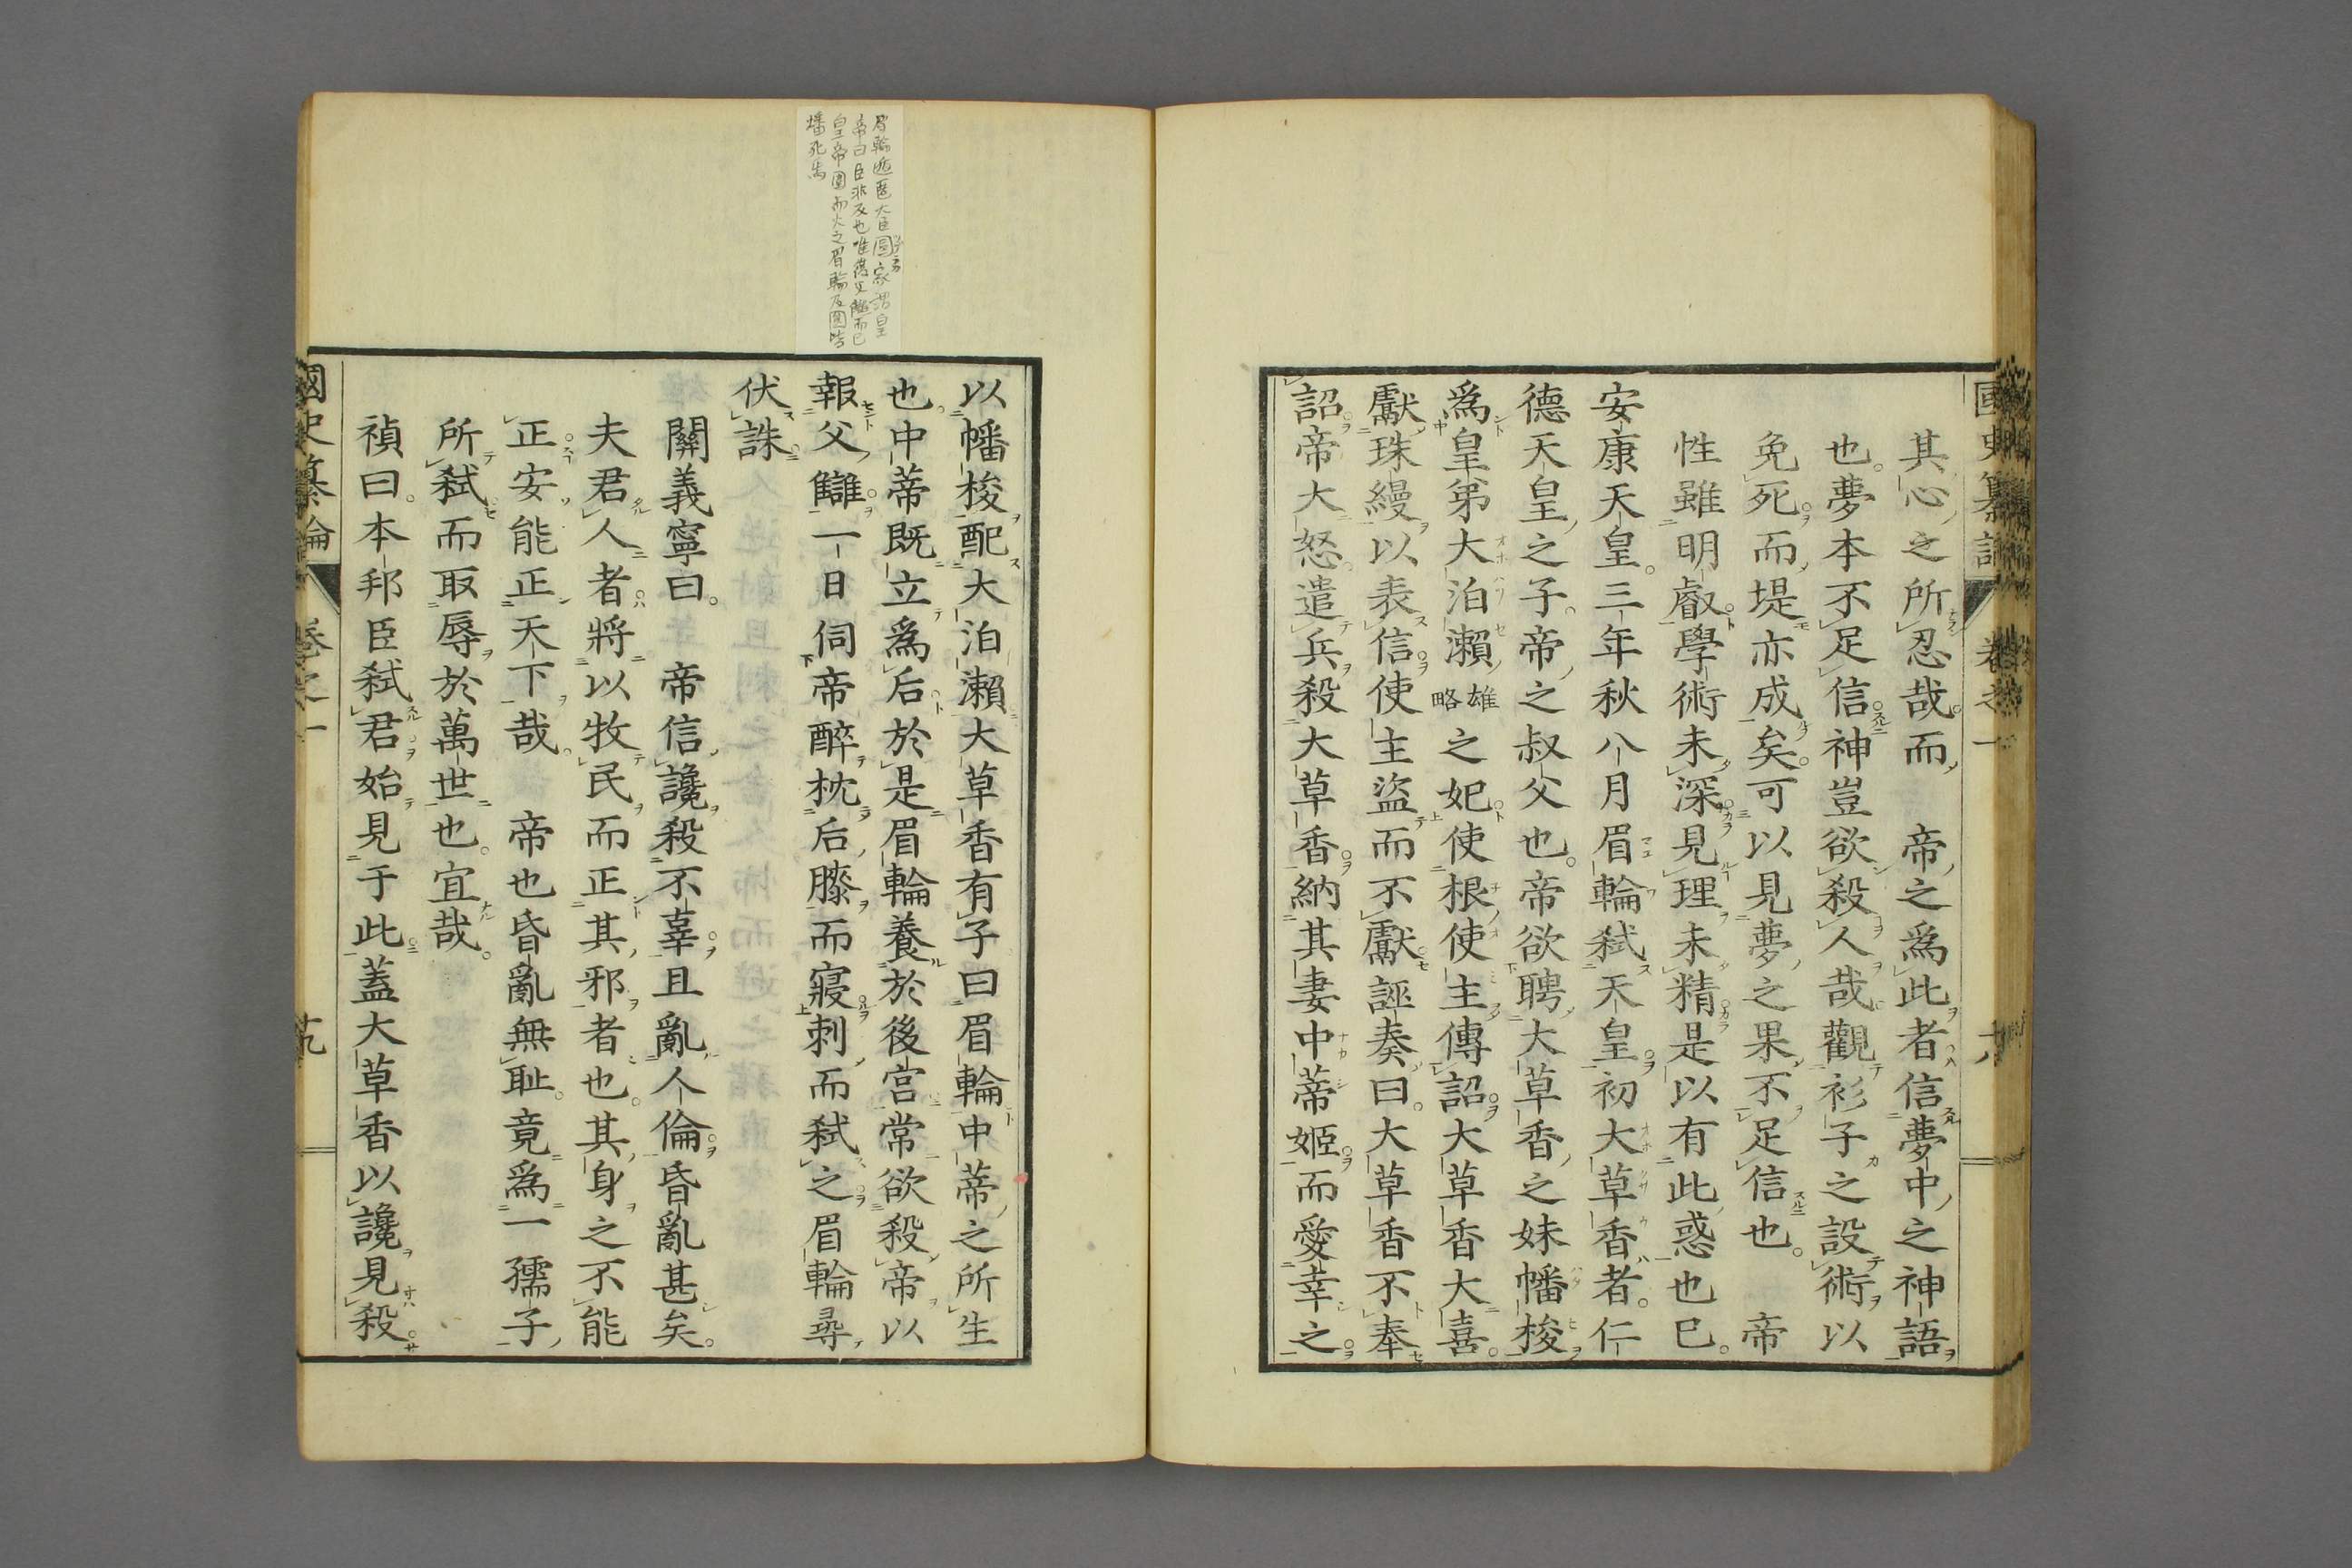 國史纂論 卷之一
其心之所忍哉而 帝之爲此者信夢中之神語
也夢本不足信神豈欲殺人哉觀衫子之設術以
免死而堤亦成矣可以見夢之果不足信也 帝
性雖明叡學術未深見理未精是以有此惑也已
安康天皇三年秋八月眉輪弑天皇初大草香者仁
德天皇之子帝之叔父也帝欲聘大草香之妹幡梭
爲皇弟大泊瀬雄略之妃使根使主傳詔大草香大喜
獻珠縵以表信使主盜而不獻誣奏曰大草香不奉
詔帝大怒遣兵殺大草香納其妻中蒂姬而愛幸之
以幡梭配大泊瀬大草香有子曰眉輪中蒂之所生
也中蒂既立爲后於是眉輪養於後宮常欲殺帝以
報父讎一日伺帝醉枕后膝而寢刺而弑之眉輪尋
伏誅
關義寧曰 帝信讒殺不辜且亂人倫昏亂甚矣
夫君人者將以牧民而正其邪者也其身之不能
正安能正天下哉 帝也昏亂無耻竟爲一孺子
所弑而取辱於萬世也宜哉
禎曰本邦臣弑君始見于此蓋大草香以讒見殺
國史纂論 卷之一
眉輪遁匿大臣圓家謂皇
帝曰臣非反也唯復父讎而已
皇帝圍而火之眉輪及圓皆
燔死焉